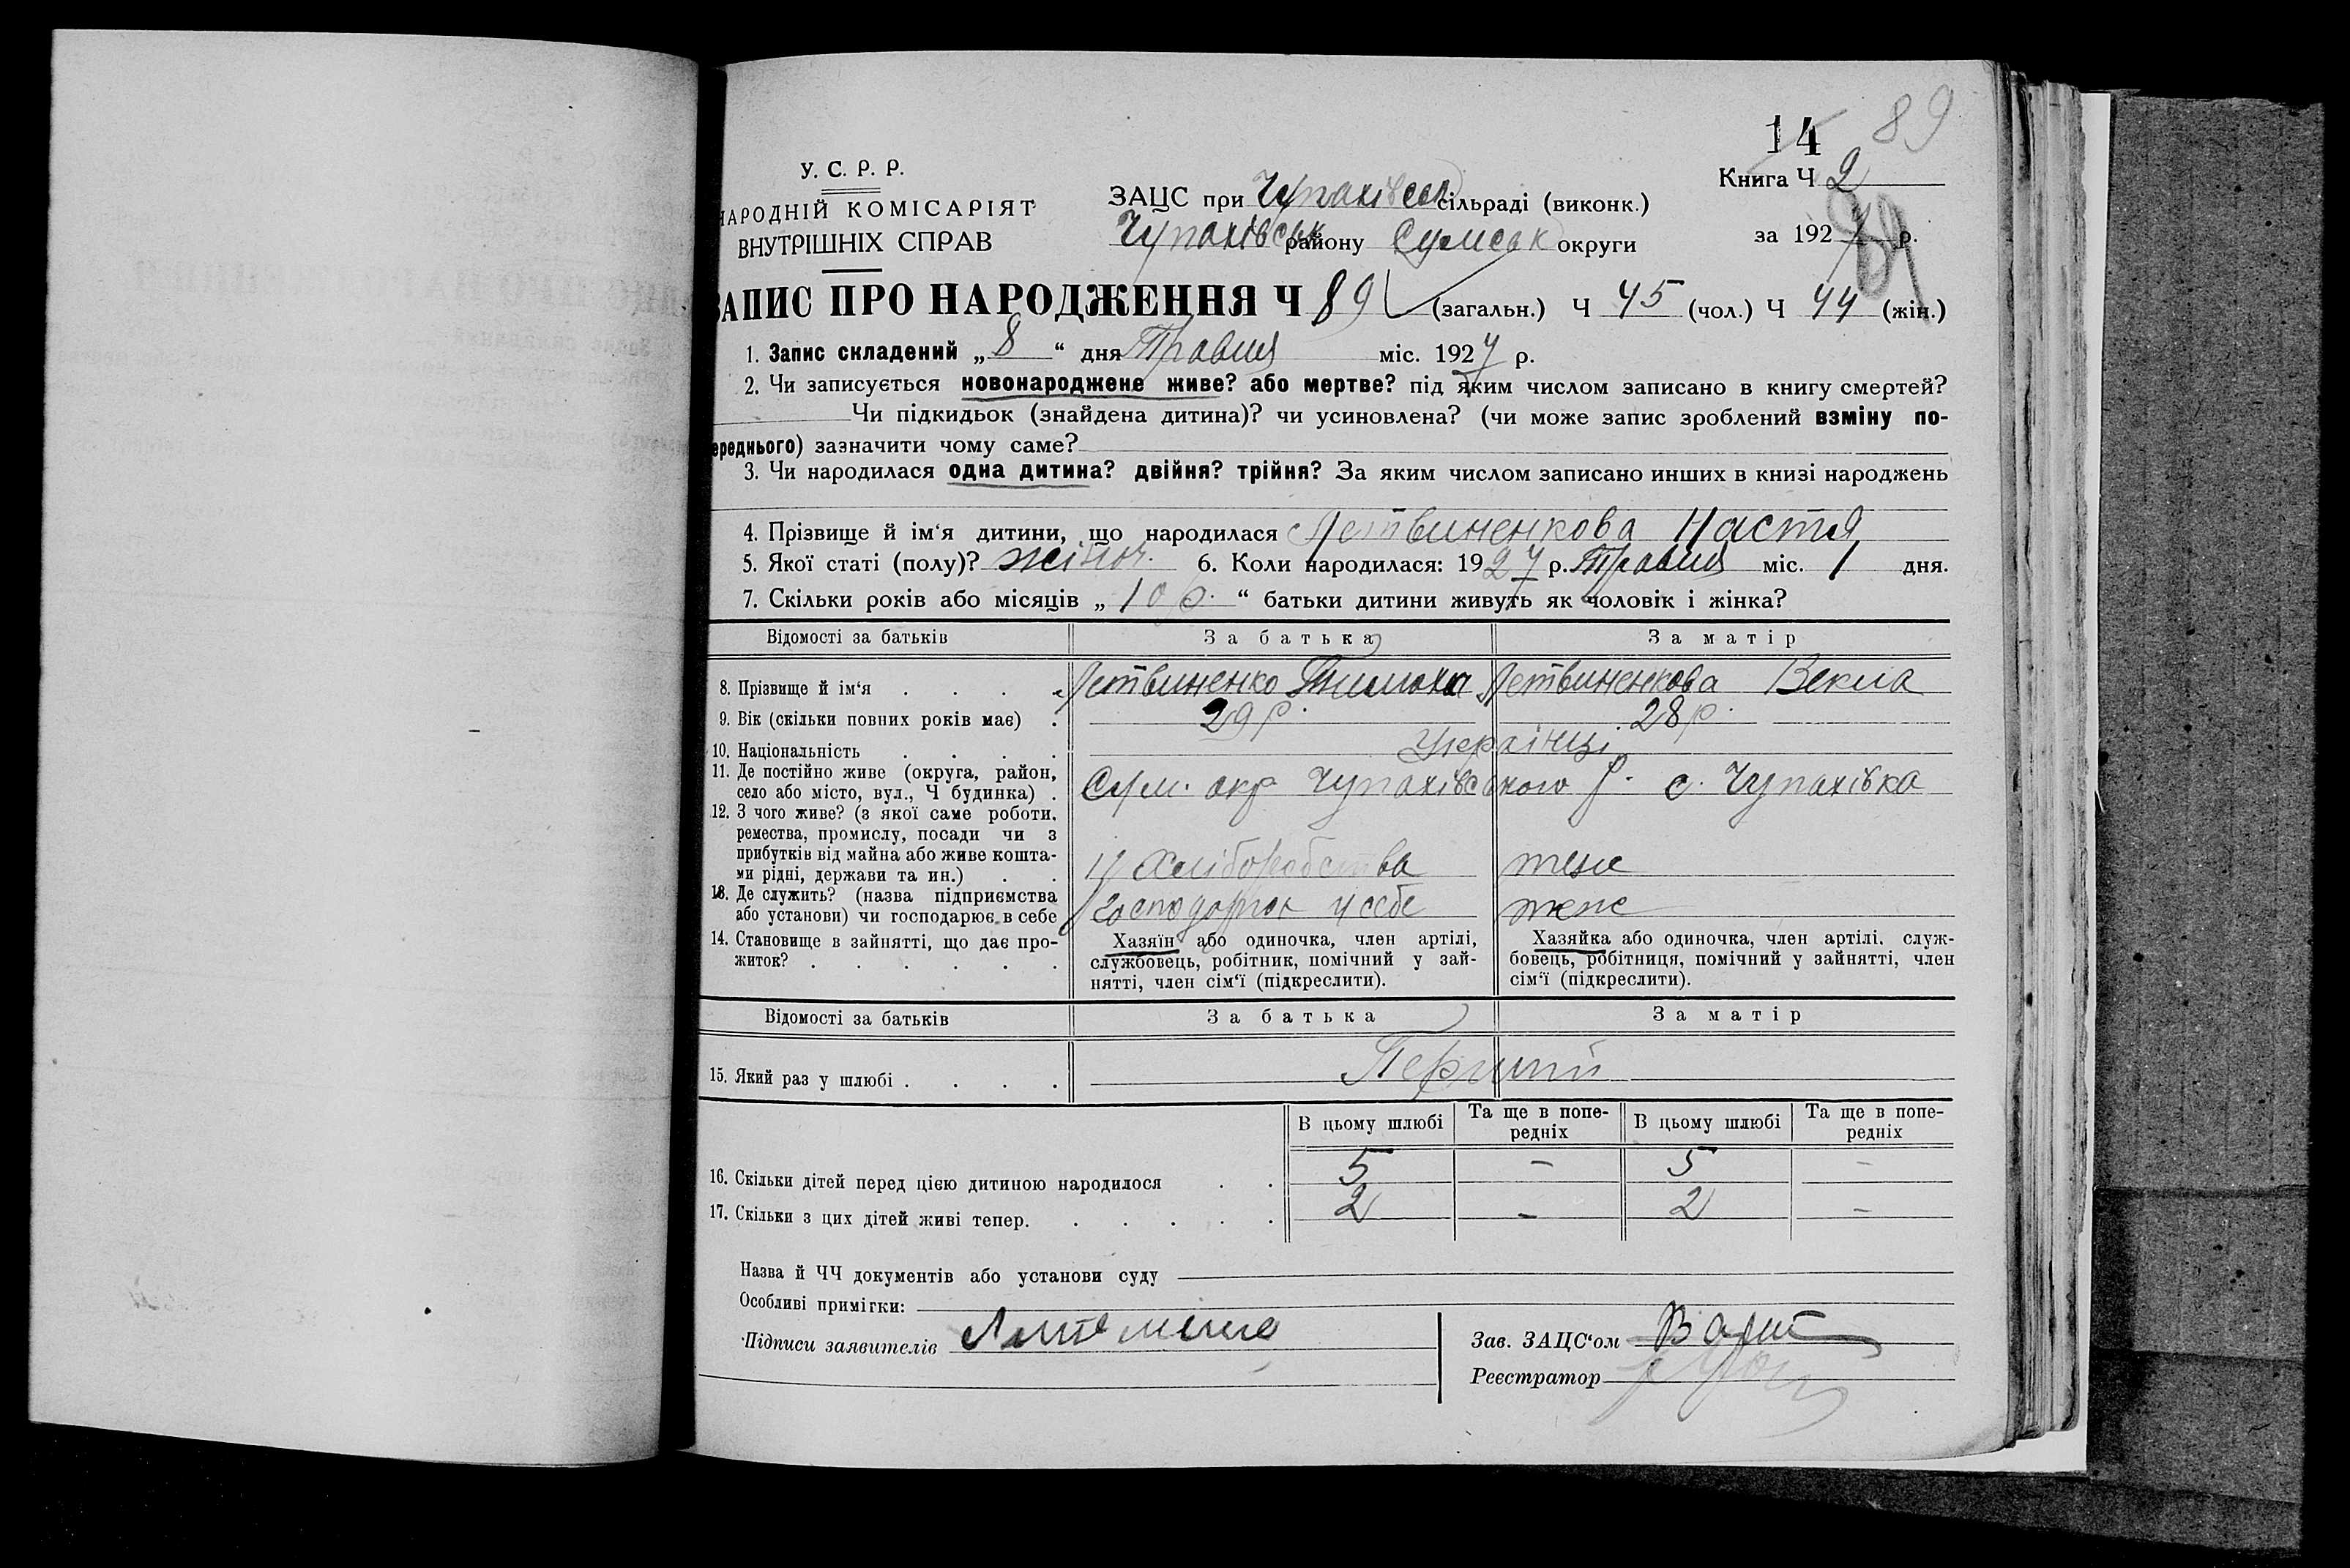 14 89
У. С. Р. Р.
НАРОДНІЙ КОМІСАРІЯТ
ВНУТРІШНІХ СПРАВ
ЗАЦС при Чупахівськ сільраді (виконк.)
Чупахівськ району Сумськ округи
Книга Ч 2
за 1927 р.
89
ЗАПИС ПРО НАРОДЖЕННЯ Ч 89 (загальн.) Ч 45 (чол.) Ч 44 (жін.)
1. Запис складений „ 8 “ дня Травня міс. 1927 р.
2. Чи записується новонароджене живе? або мертве? під яким числом записано в книгу смертей?
Чи підкидьок (знайдена дитина)? чи усиновлена? (чи може запис зроблений взміну по-
ереднього) зазначити чому саме?
3. Чи народилася одна дитина? двійня? трійня? За яким числом записано инших в книзі народжень
4. Прізвище й ім‘я дитини, що народилася Летвиненкова Настя
5. Якої статі (полу)? жіноч. 6. Коли народилася: 1927 р. Травня міс. 1 дня.
7. Скільки років або місяців „ 10 р. “ батьки дитини живуть як чоловік і жінка?
Відомості за батьків За батька За матір
8. Прізвище й ім‘я . . . . Летвиненко Тимоха Летвиненкова Векла
9. Вік (скільки повних років має) . 29 р. 28 р.
10. Національність . . . . Українці
11. Де постійно живе (округа, район,
село або місто, вул., Ч будинка) . Сум. окр Чупахівського р. с. Чупахівка
12. З чого живе? (з якої саме роботи,
ремества, промислу, посади чи з
прибутків від майна або живе кошта-
ми рідні, держави та ин.) . . Хліборобства теж
13. Де служить? (назва підприємства
або установи) чи господарює в себе у себе теж
14. Становище в зайнятті, що дає про-
житок? . . . . . .
Хазяїн або одиночка, член артілі,
службовець, робітник, помічний у зай-
нятті, член сім‘ї (підкреслити).
Хазяйка або одиночка, член артілі, служ-
бовець, робітниця, помічний у зайнятті, член
сім‘ї (підкреслити).
Відомості за батьків За батька За матір
15. Який раз у шлюбі . . . . Перший
В цьому шлюбі Та ще в попе-
редніх В цьому шлюбі Та ще в попе-
редніх
16. Скільки дітей перед цією дитиною народилося . . 5 – 5 –
17. Скільки з цих дітей живі тепер. . . . . . 2 – 2 –
Назва й ЧЧ документів або установи суду
Особливі примітки:
Підписи заявителів
Зав. ЗАЦС‘ом
Реєстратор